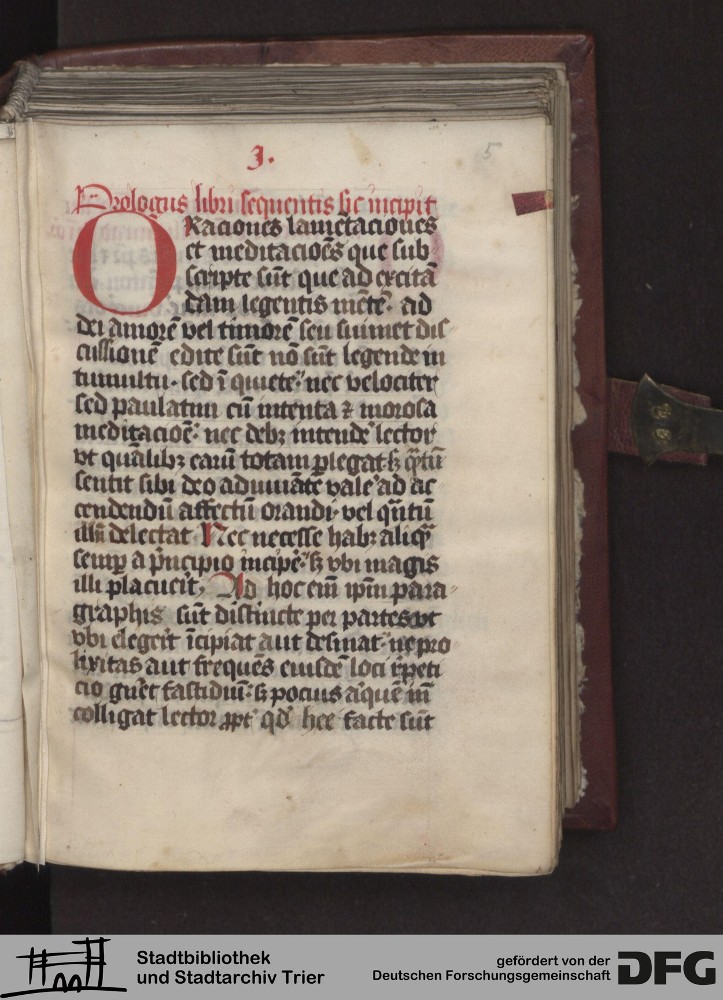 J.
5
Prologus libri sequentis sic incipit
ORaciones lametacioues
et meditacioēs que sub
scripte sūt que ad excitā
dam legentis mētē· ad
dei amorē vel timorē seu suimet dis
cussionē edite sūt nō sūt legende in
tumultu· sed ī quiete· nec velociter
sed paulatim cū intenta ⁊ morosa
meditacioē· nec debꝫ intende' lector
vt quālibꝫ earū totam ꝑlegat sꝫ qͣtū
sentit sibi deo adiuuāte vale' ad ac
cendendiū affectū orandi· vel qūtū
illū delectat Nec necesse habꝫ aliqͣ
semꝑ a p̄ncipio incipe'· sꝫ vbi magis
illi placueīt, Ad hoc em̄ ip̄m para
graphis sūt distincte per partes vt
vbi elegeīt īcipiat aut desinat· ne pro
lixitas aut frequēs eiusdē loci r̄peti
cio gn̄et fastidiū· sꝫ pocius aͥque in̄
colligat lector ꝓpt' qd' hec facte sūt
Stadtbibliothek
und Stadtarchiv Trier
gefördert von der
Deutschen Forschungsgemeinschaft
DFG